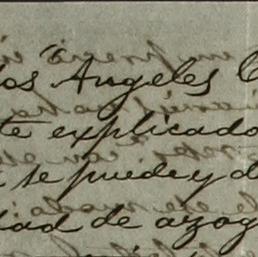 los Angeles
te explicado
se puede y d
dad de azog